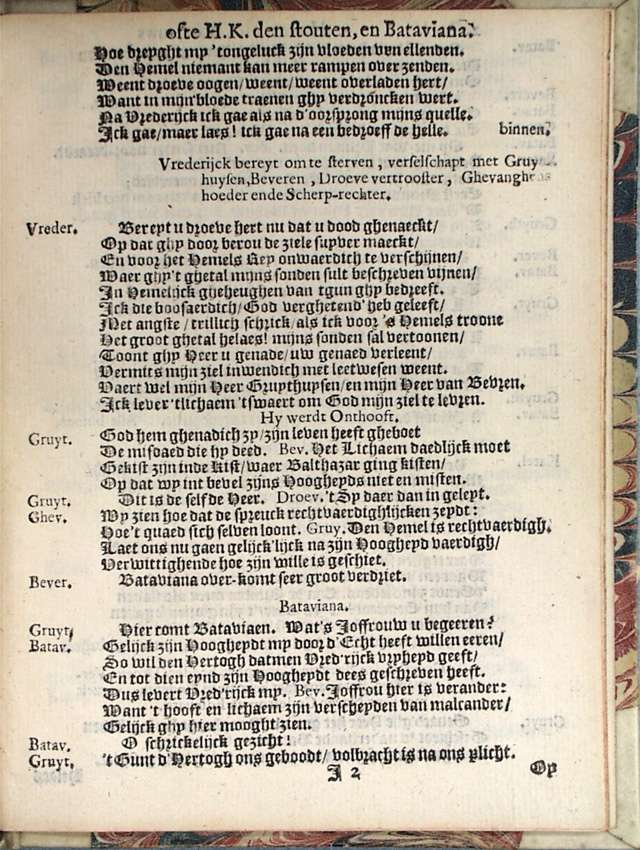 ofte H.K. den stouten, en Bataviana.
Hoe dreyght my 'tongeluck zijn vloeden van ellenden.
Den Hemel niemant kan meer rampen over zenden.
Weent droeve oogen/weent/weent overladen hert/
Want in mijn'bloede traenen ghy verdroncken wert.
Na Vrederijck ick gae als na d'oorsprong mijns quelle.
Ick gae/maer laes! ick gae na een bedroeffde helle. binnen.
Vrederijck bereyt om te sterven, verselschapt met Gruy
huysen, Beveren, Droeve vertrooster, Ghevanghens
hoeder ende Scherp-rechter.
Vreder. Bereyt u droeve hert nu dat u dood ghenaeckt/
Op dat ghy door berou de ziele suyver maeckt/
En voor het Hemels Rey onwaerdich te verschijnen/
Waer ghy't ghetal mijns sonden sult beschreven vijnen/
In Hemelijck gheheughen van tgun ghy bedreeft.
Ick die boosaerdich/God verghetend' heb geleeft/
Met angste/trillich schrick/als ick voor 's Hemels troone
Het groot ghetal helaes! mijns sonden sal vertoonen/
Toont ghy Heer u genade/uw genaed verleent/
Vermits mijn ziel inwendich met leetwesen weent.
Vaert wel mijn Heer Gruythuysen/en mijn Heer van Bevren.
Ick lever 'tlichaem 'tswaert om God mijn ziel te levren.
Hy werdt Onthooft.
Gruyt. God hem ghenadich zy/zijn leven heeft gheboet
De misdaed die hy deed. Bev. Het Lichaem daedlijck moet
Gekist zijn inde kist/waer Balthazar ging kisten/
Op dat wy int bevel zijns Hoogheyds niet en misten.
Gruyt. Dit is de selfde Heer. Droev. 't Sy daer dan in geleyt.
Ghev. Wy zien hoe dat de spreuck rechtvaerdighlijcken zeydt:
Hoe't quaed sich selven loont. Gruy. Den Hemel is rechtvaerdigh.
Laet ons nu gaen gelijck'lijck na zijn Hoogheyd vaerdigh/
Verwittighende hoe zijn wille is geschiet.
Bever. Bataviana over-komt seer groot verdriet.
Bataviana.
Gruyt. Hier comt Bataviaen. Wat's Joffrouw u begeeren?
Batav. Gelijck zijn Hoogheydt my door d'Echt heeft willen eeren/
So wil den Hertogh datmen Vred'rijck vryheyd geeft/
En tot dien eynd zijn Hoogheydt dees geschreven heeft.
Dus levert Vred'rijck my. Bev. Joffrou hier is verander:
Want 't hooft en lichaem zijn verscheyden van malcander/
Gelijck ghy hier mooght zien.
Batav. O schrickelijck gezicht!
Gruyt. 't Gunt d'Hertogh ons geboodt/ volbracht is na ons plicht.
I 2 Op